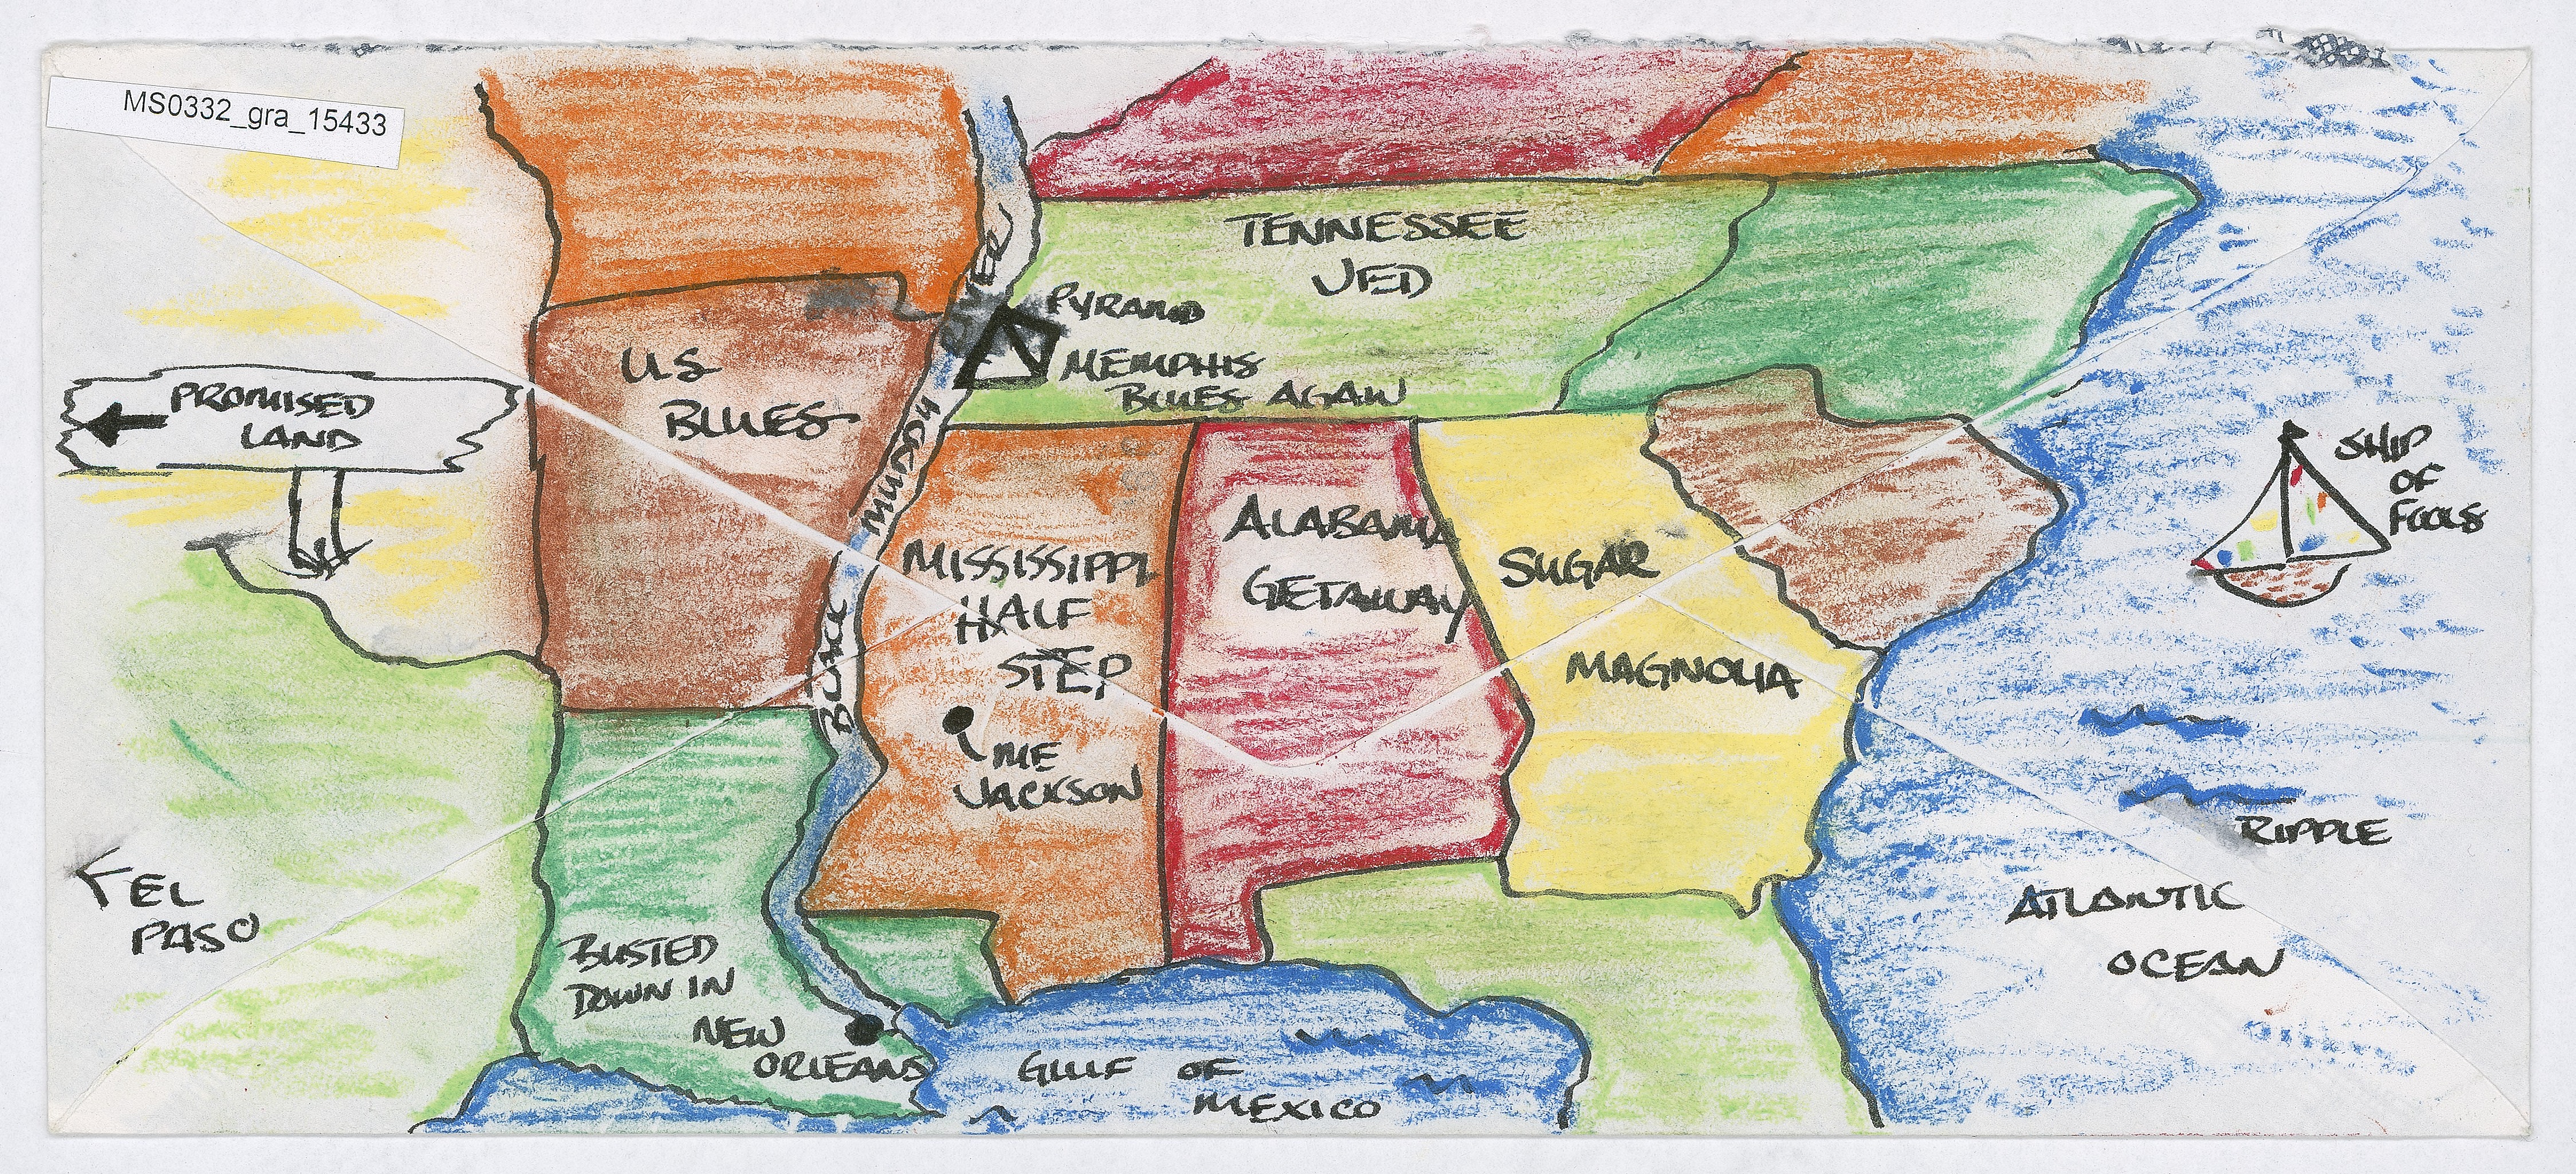 MS0332_gra_15433
TENNESSEE
JED
PYRAMID
MEMPHIS
BLUES AGAIN
U.S.
BLUES
PROMISED
LAND
BLACK MUDDY RIVER
MISSISSIPPI
HALF
STEP
ME
JACKSON
ALABAMA
GETAWAY
SUGAR
MAGNOLIA
SHIP
OF
FOOLS
RIPPLE
ATLANTIC
OCEAN
EL
PASO
BUSTED
DOWN IN
NEW
ORLEANS
GULF OF
MEXICO